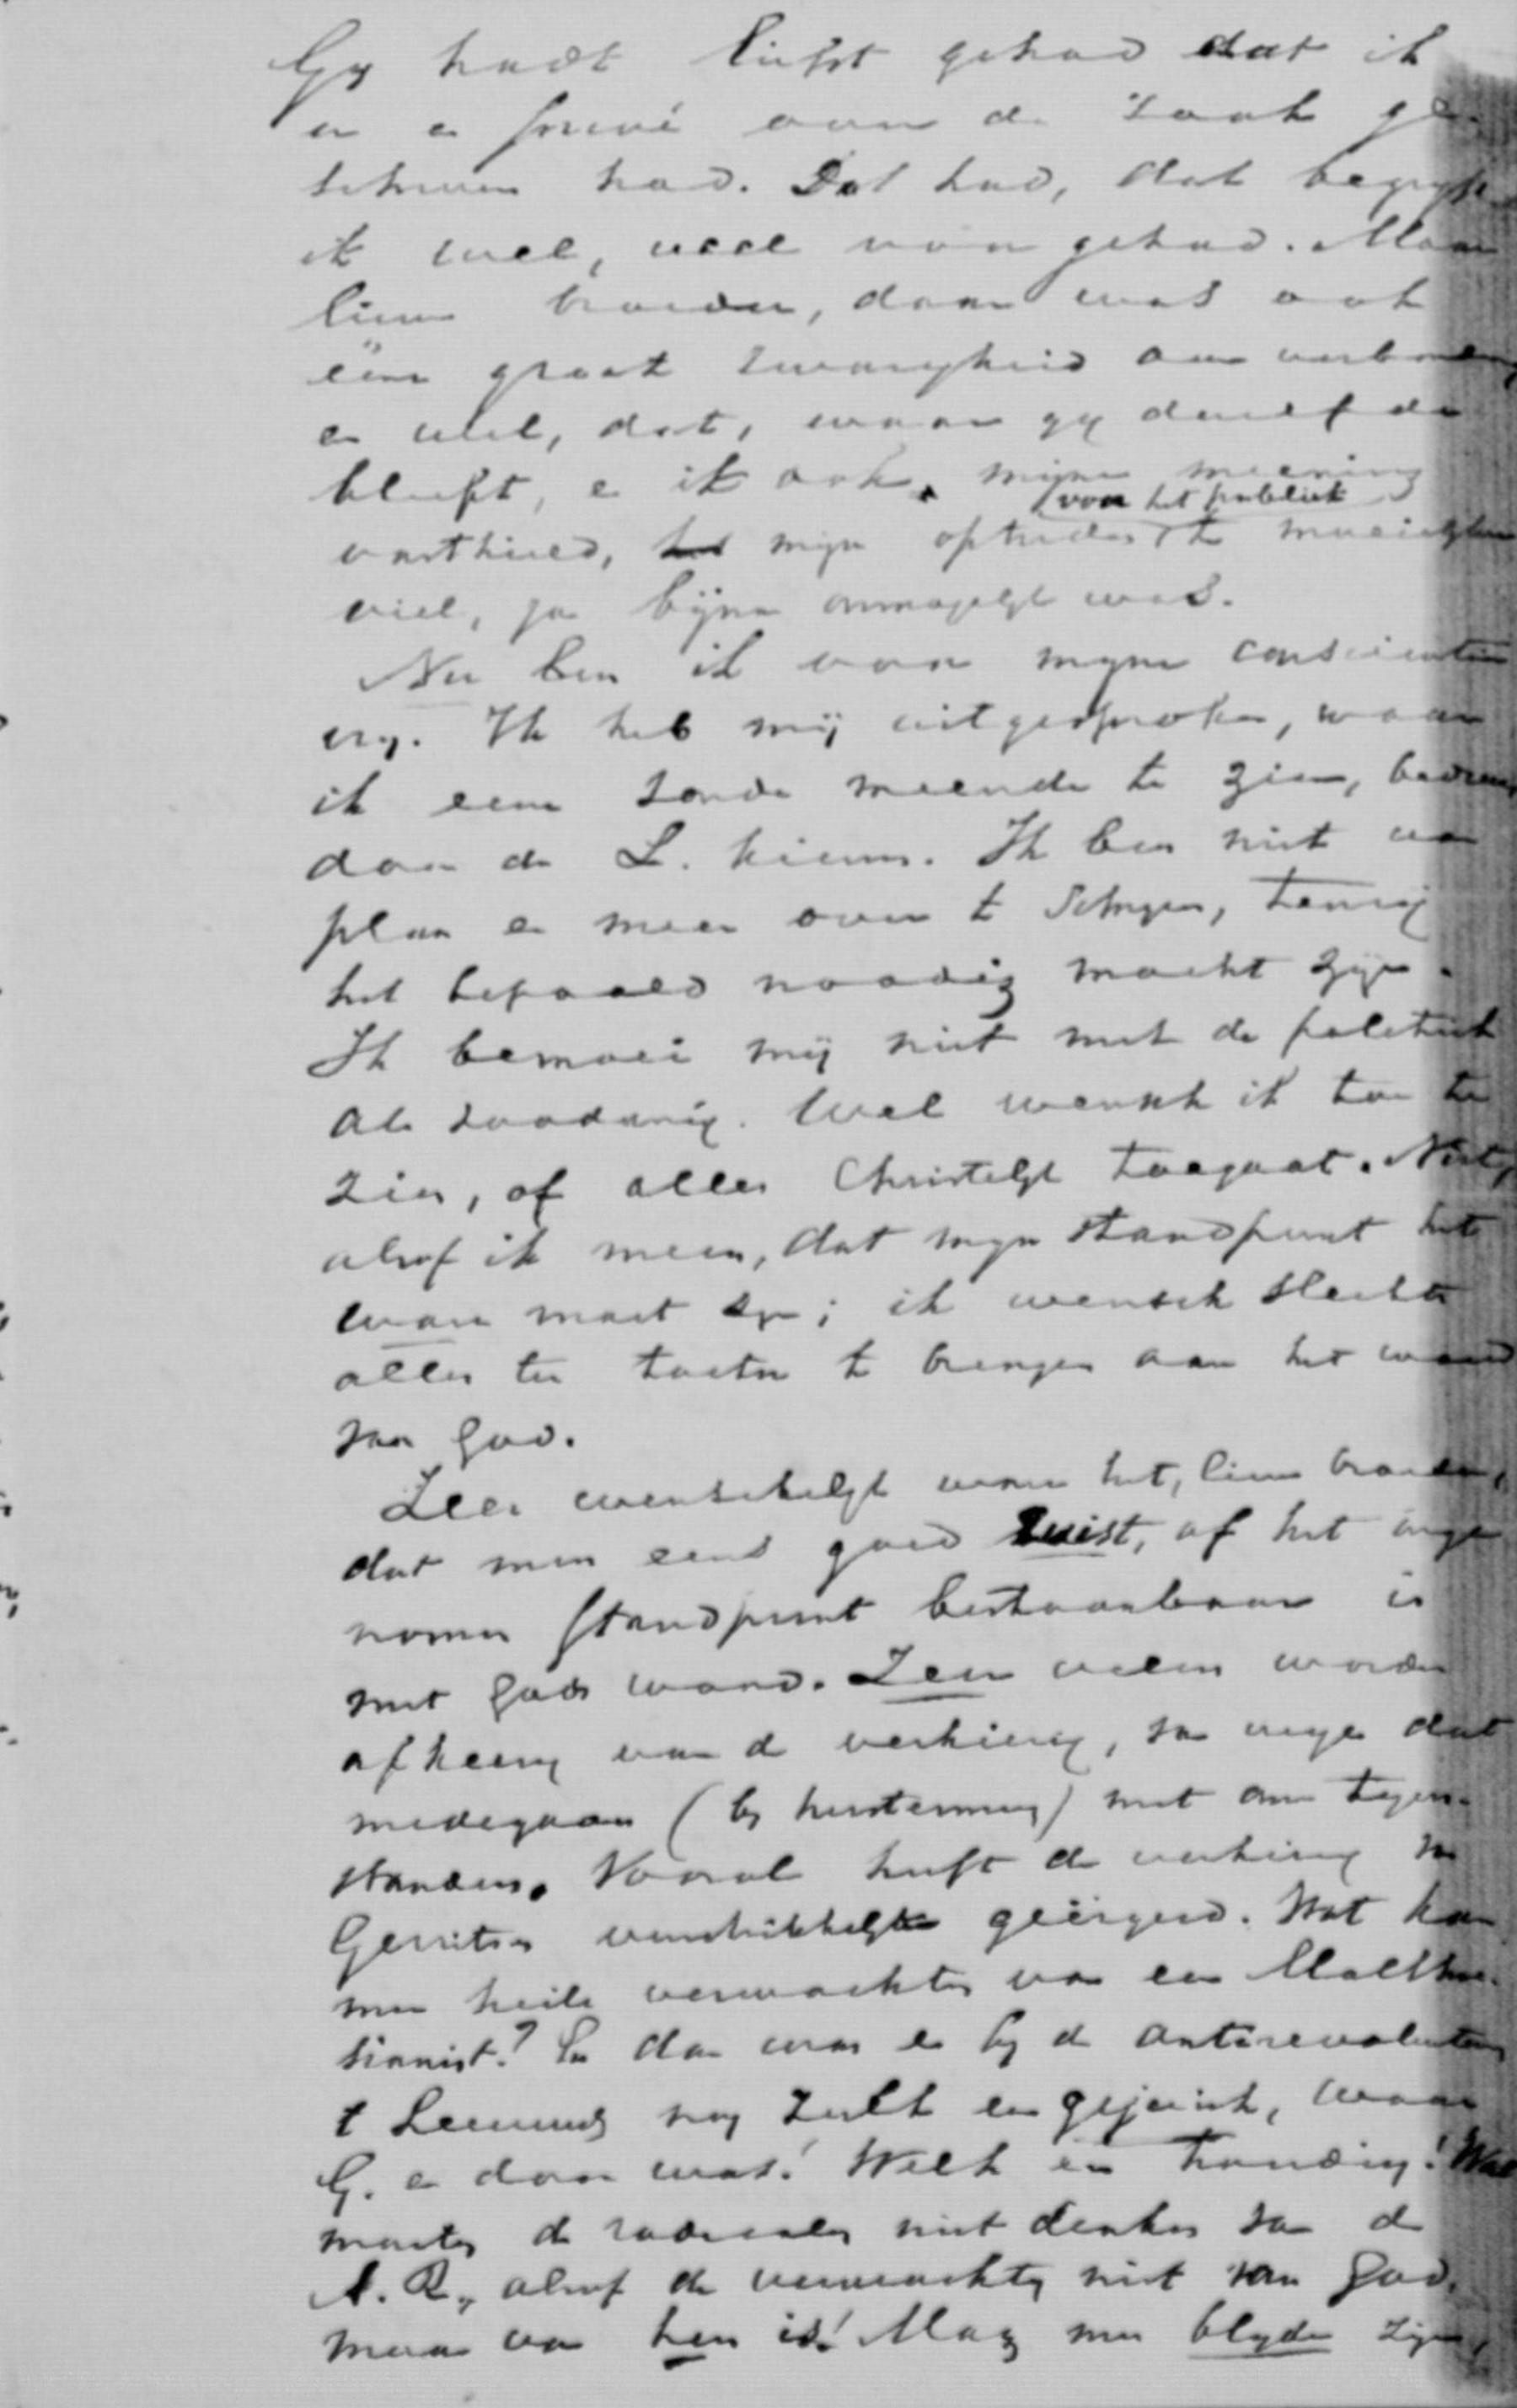 Gy hadt liefst gehad dat ik
u en privé over de zaak ge-
schreven had. Dat had, dat begryp
ik wel, veel voor gehad. Maar
lieve broeder, daar was ook
één groot zwarigheid aan verbonden
en wel, dat, waar gy dezelfde
bleeft, en ik ook mijne meening
(voor het publiek)
vasthield, mijn optreden te moeielyk
viel, ja bijna onmogelyk was.
Nu ben ik voor myne conscientie
vry. Ik heb mij uitgesproken, waar
ik eene zonde meende te zien,
door de L. kiezers. Ik ben niet van
plan er meer over te schryven, tenzij
het bepaald noodig mocht zyn.
Ik bemoei mij niet met de politiek
als zoodanig. Wel wensch ik toe te
zien, of alles Christelyk toegaat. Niet,
alsof ik meen, dat myn standpunt het
ware moet zyn; ik wensch slechts
alles ter toetse te brengen aan het woord
van God.
Zeer wenschelyk ware het, lieve broeder,
dat men eens goed wist, of het inge-
nomen standpunt bestaanbaar is
met Gods woord. Zeer velen worden
afkeerig van de verkiezing, van wege dat
medegaan (by herstemming) met onze tegen-
standers. Vooral heeft de verkiezing van
Gerritsen verschrikkelyk geërgerd. Wat kan
men heils verwachten van een Malthu-
sianist? En dan was er by de antirevolutionairen
te Leeuwarden nog zulk een gejuich, waar
G. er door was! Welk een houding! Wat
moeten de radicalen niet denken van de
A. R., alsof de verwachting niet van God,
maar van hen is! Mag men blyde zyn,